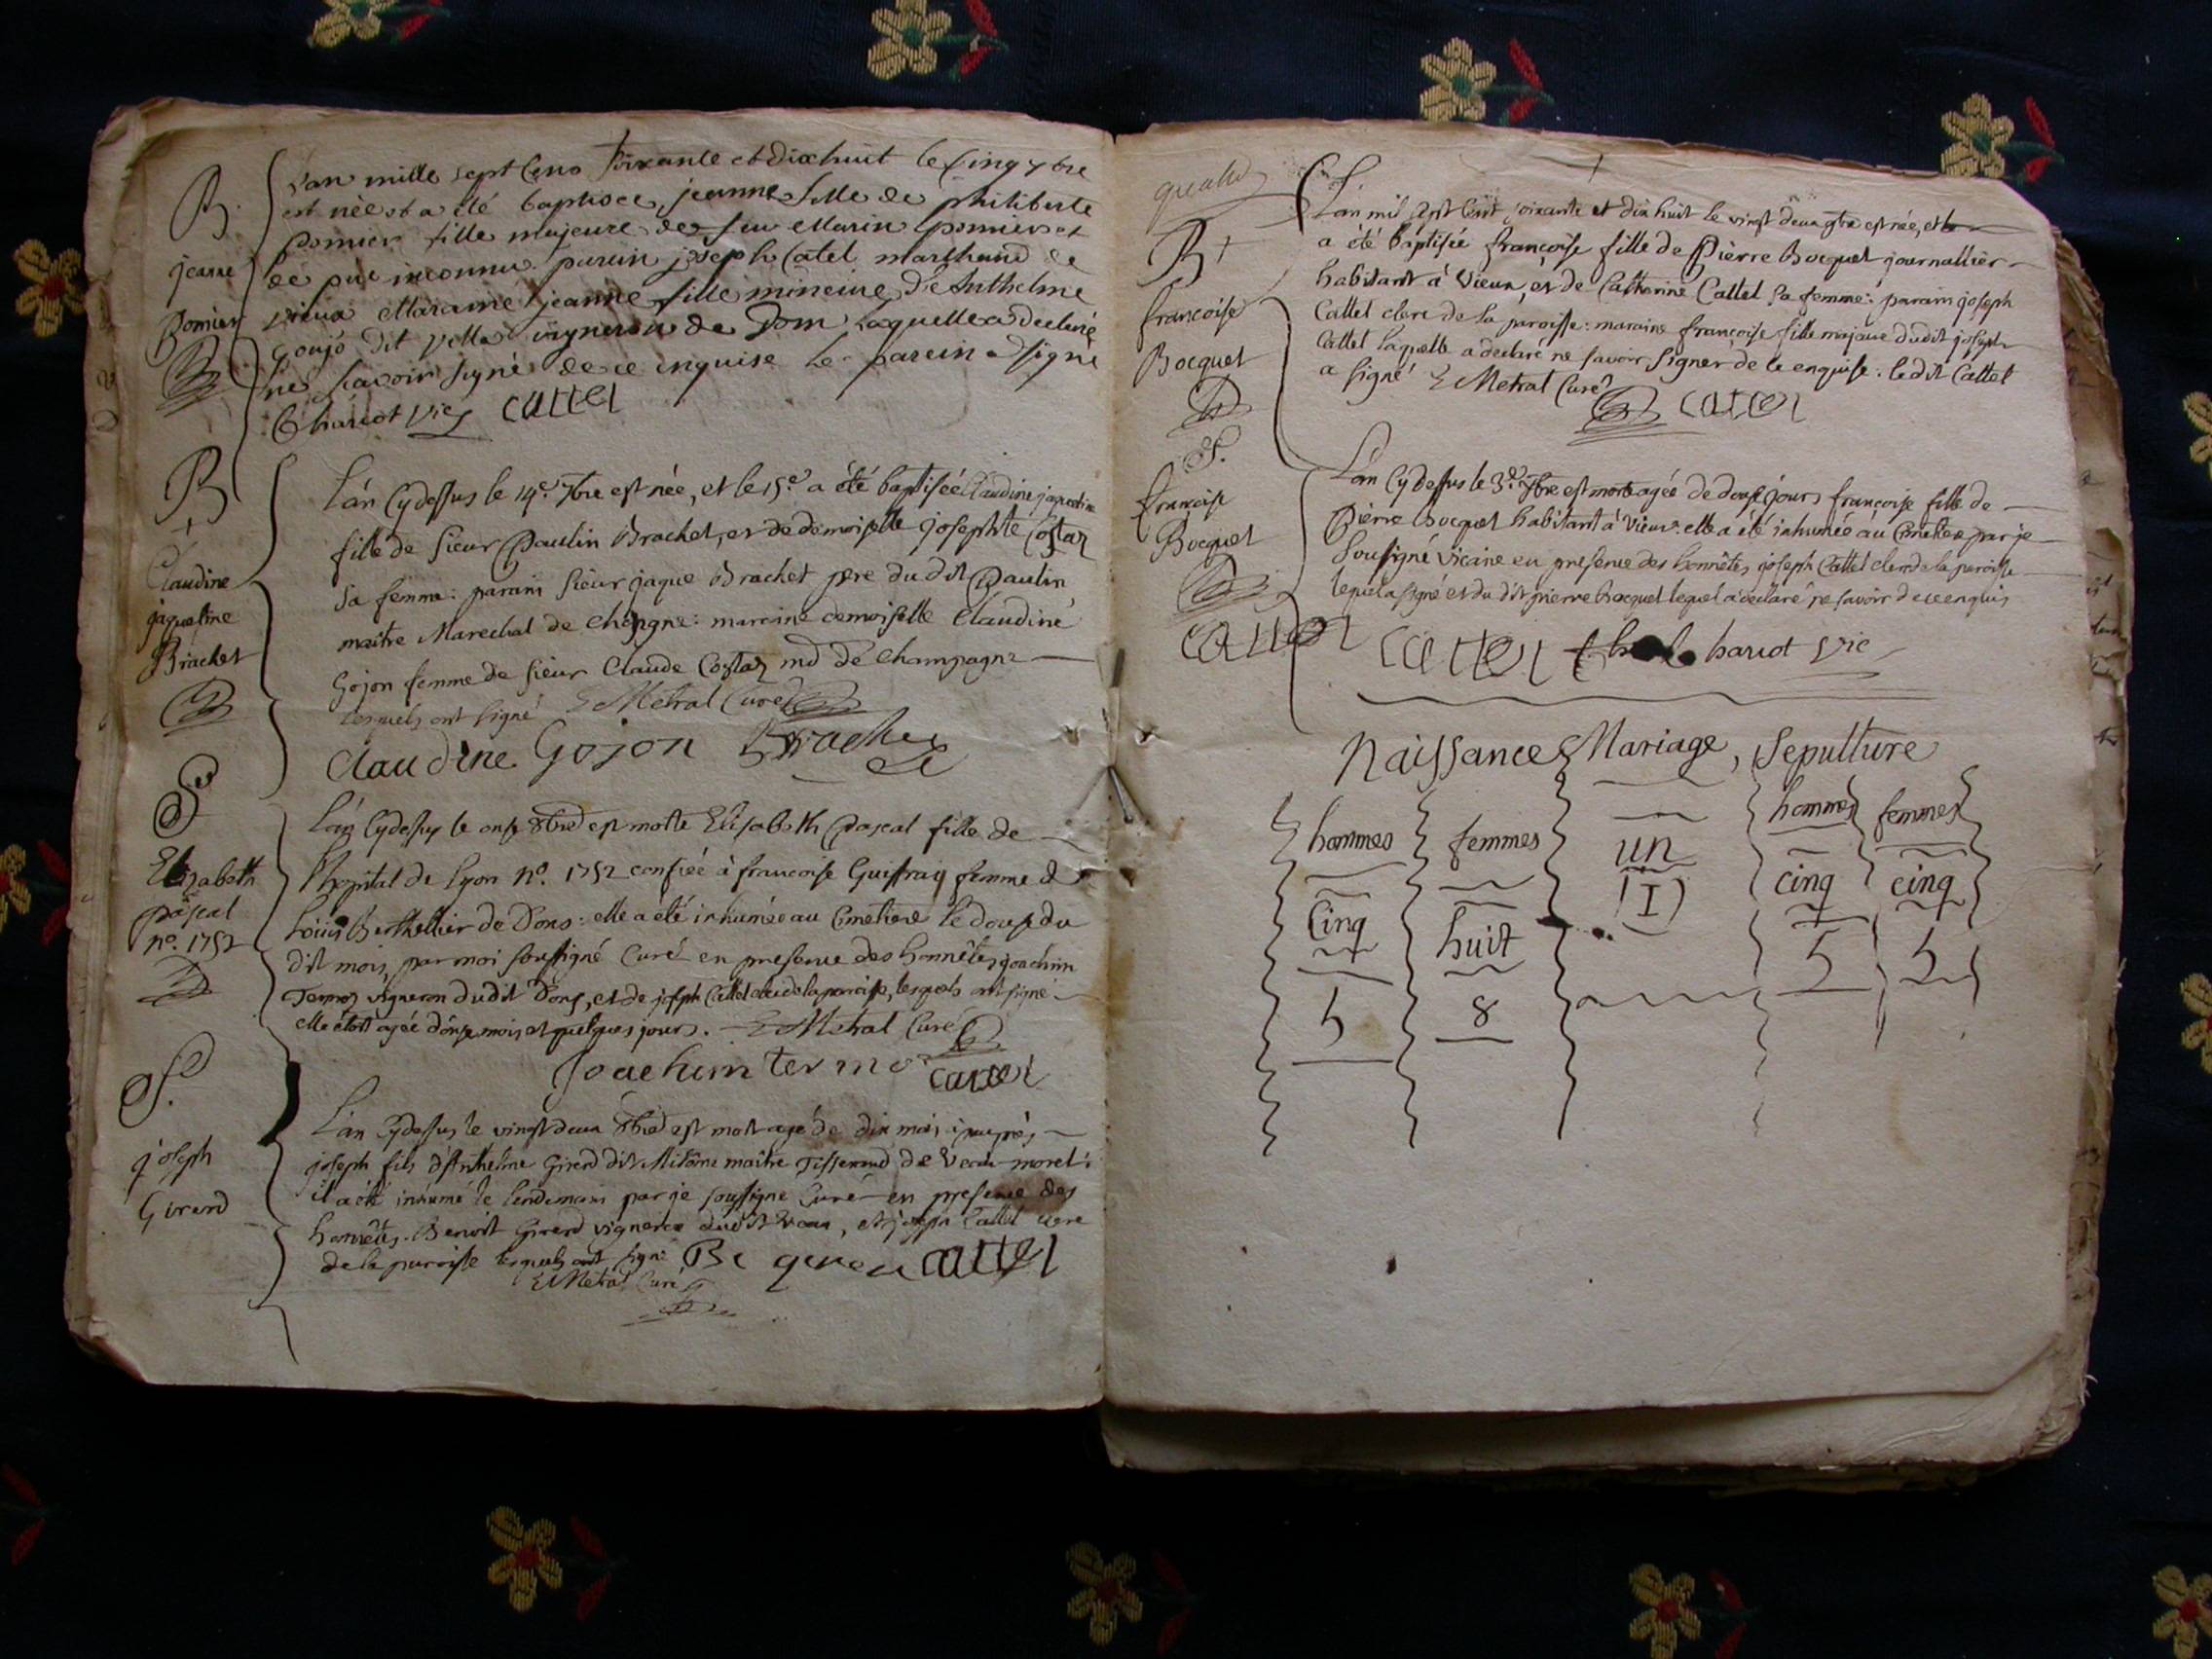 B.
jeanne
Pomier
L'an mille sept Cens soixante et dixhuit le Cinq 7bre
est née et a été baptisée, jeanne fille de philiberte
pomier fille majeure de feu Marin pomier et
de pere inconnu parein joseph Catel marchand de
vieux Maraine jeanne fille mineure d'Anthelme
goujo dit vigneron de Don laquelle a declaré
ne scavoir signé de ce enquise le parein a signé
Chariot vic cattel
B
+
Claudine
jaqueline
Brachet
L'an Cydessus le 14e. 7bre est née, et le 15e. a été baptisée Claudine jaqueline
fille de sieur Paulin Brachet, et de demoiselle josephte Costaz
sa femme: parain sieur jaque Brachet pere du dit Paulin
maitre Marechal de : maraine demoiselle Claudine
Gojon femme de sieur Claude Costaz md de Champagne
lesquels ont signé Metral Curé
Claudine Gojon Brachet
S
Elizabeth
pascal
no. 1752
L'an Cydessus le onze 8bre est morte Elisabeth Pascal fille de
l'hopital de Lyon no. 1752 confiée à francoise Guiffray femme de
Louis Berthellier de Dons: elle a été inhumée au Cimetiere le douse du
dit mois, par moi soussigné Curé en presence des honnêtes joachim
Termoz vigneron dudit Dons, et de joseph Cattel clerc de la paroisse, lesquels ont signé
elle étoit agée d'onze mois et quelques jours. Metral Curé
Joachim termo cattel
S.
joseph
Girerd
L'an Cydessus le vingt deux 8bre est mort agé de dix mois
joseph fils d'Anthelme Girerd dit maître Tisserand de
il a été inhumé le lendemain par je soussigné Curé en presence des
honnêtes Benoit Girerd vigneron dudit, et joseph Cattel clerc
de la paroisse lesquels ont signé Be cattel
Metral Curé
B +
francoise
Bocquet
L'an mil sept Cent soixante et dix huit le vingt deux 9bre est née, et
a été baptisée francoise fille de Pierre Bocquet journallier
habitant à Vieux, et de Catherine Cattel sa femme: parain joseph
Cattel clerc de la paroisse: maraine francoise fille majeure dudit joseph
Cattel laquelle a declaré ne savoir signer de ce enquise: ledit Cattel
a signé Metral Curé cattel
S.
francoise
Bocquet
L'an Cydessus le 3e. Xbre est morte agée de douse jours francoise fille de
Pierre Bocquet habitant à Vieux: elle a été inhumée au Cimetiere par je
soussigné vicaire en presence des honnêtes joseph Cattel clerc de la paroisse
lequel a signé et du dit pierre bocquet lequel a declaré ne savoir de ce enquis
cattel cattel Chariot vic
Naissance, Mariage, Sepulture
hommes femmes un hommes femmes
Cinq huit (1) cinq cinq
5 8 5 5